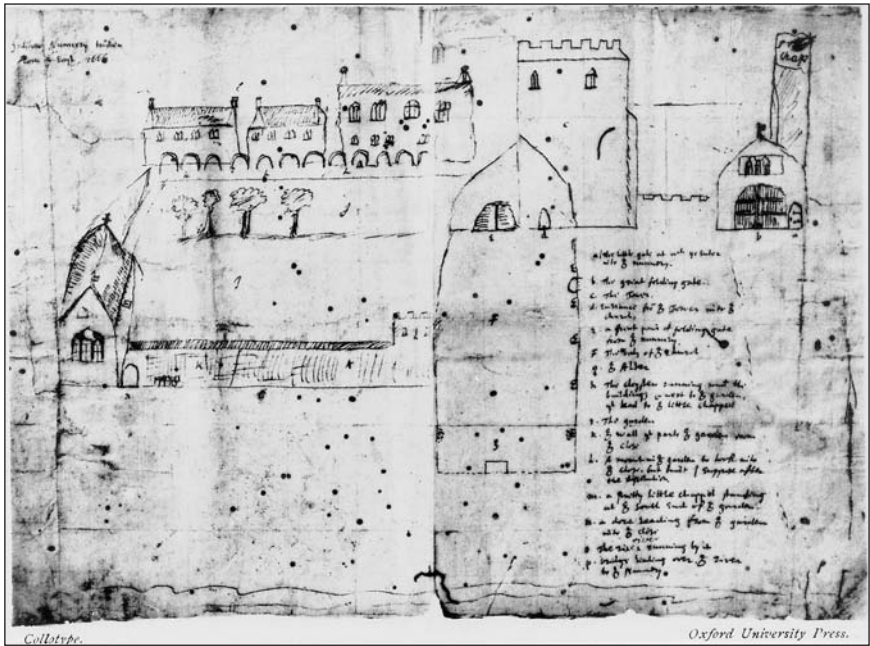 Nunnery taken
1666
Chap
a. the little gate at wch ye enter
into ye nunnery.
b. The great folding gate.
c. The Tower.
d. Entrance fro ye Tower into ye
church.
a great pair of folding gate
from ye nunnery
f. The body of ye church
g. ye Altar
h. The cloyster running under the
buildings west to ye garden,
yt lead to ye little chappel
The garden.
k. ye wall yt parts ye garden from
ye close
l. A mount in ye garden to look into
ye close, but built I suppose after
the dissolution
m. a pretty little chappel standing
at ye South End of ye garden.
n. a dore leading from ye garden
into ye close
river
o The running by it
p. bridge leading over ye River
to ye Nunnery.
Collotype.
Oxford University Press.